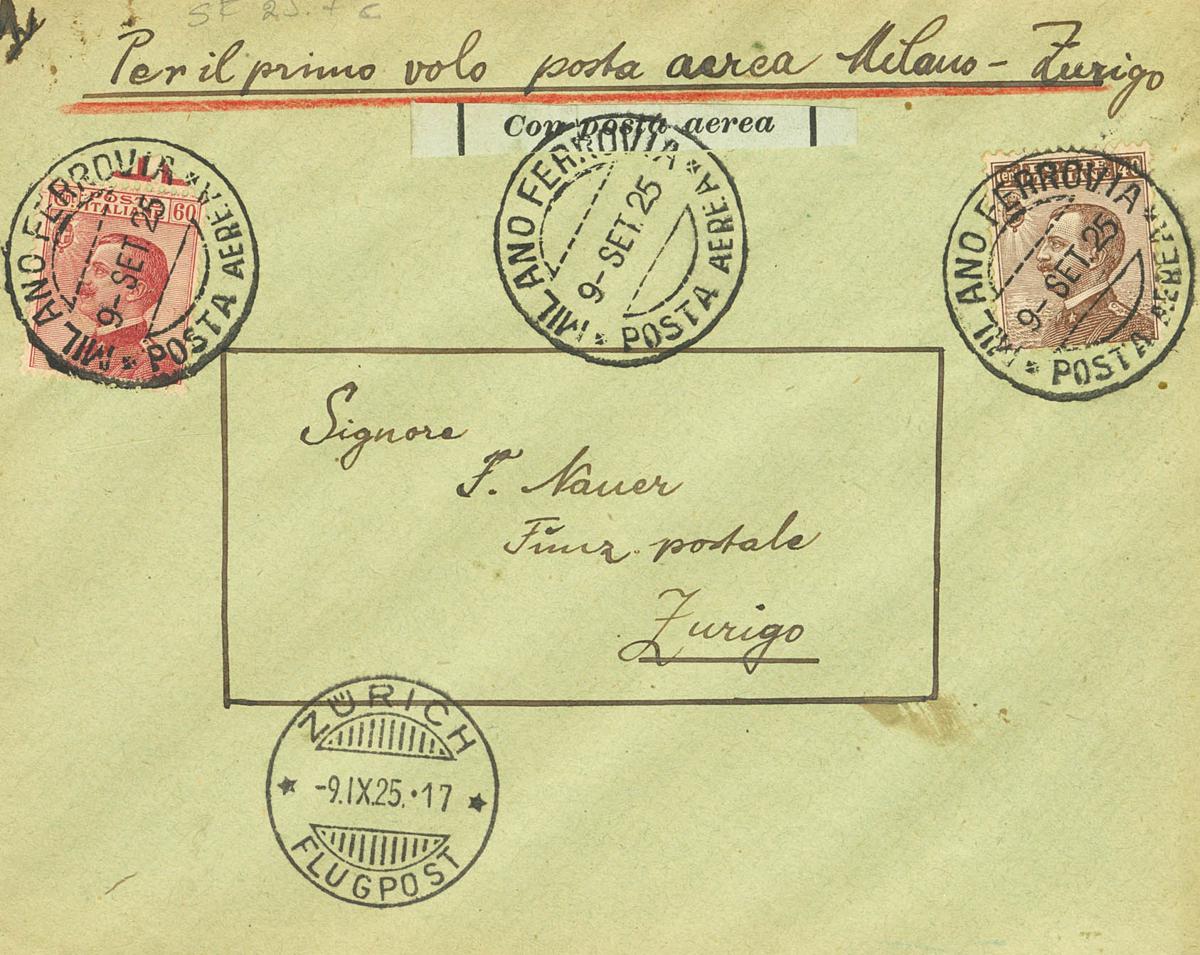 SF 25.7 c
Per il primo volo posta aerea Milano - Zurigo
Con posta aerea
MILANO FERROVIA * POSTA AEREA *
9- SET. 25
POSTE ITALIANE 60
MILANO FERROVIA * POSTA AEREA *
9- SET. 25
MILANO FERROVIA * POSTA AEREA *
9- SET. 25
40
Signore
F. Nauer
Funz. postale
Zurigo
ZÜRICH
-9.IX.25.·17
FLUGPOST